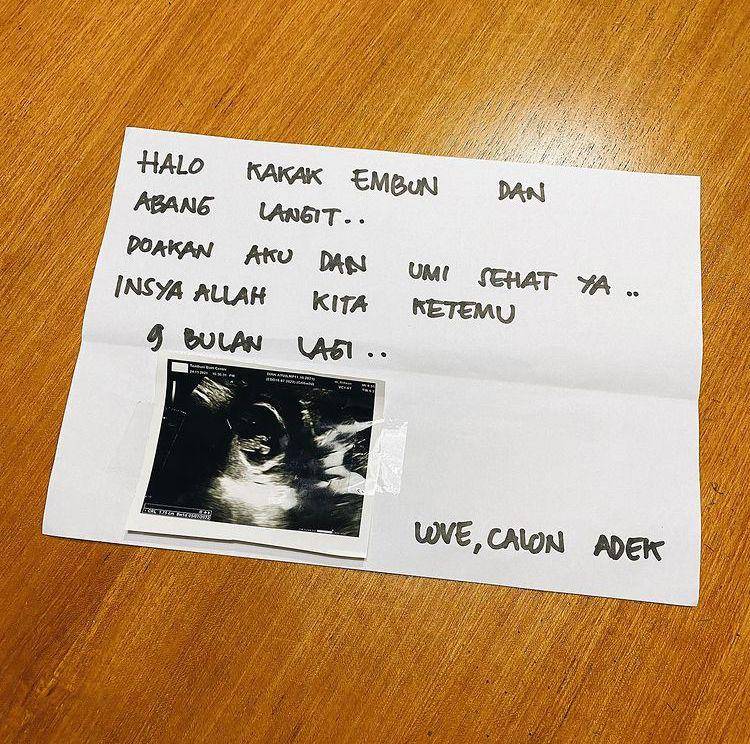 HALO KAKAK EMBUN DAN
ABANG LANGIT..
DOAKAN AKU DAN UMI SEHAT YA ..
INSYA ALLAH KITA KETEMU
9 BULAN LAGI ..
LOVE, CALON ADEK